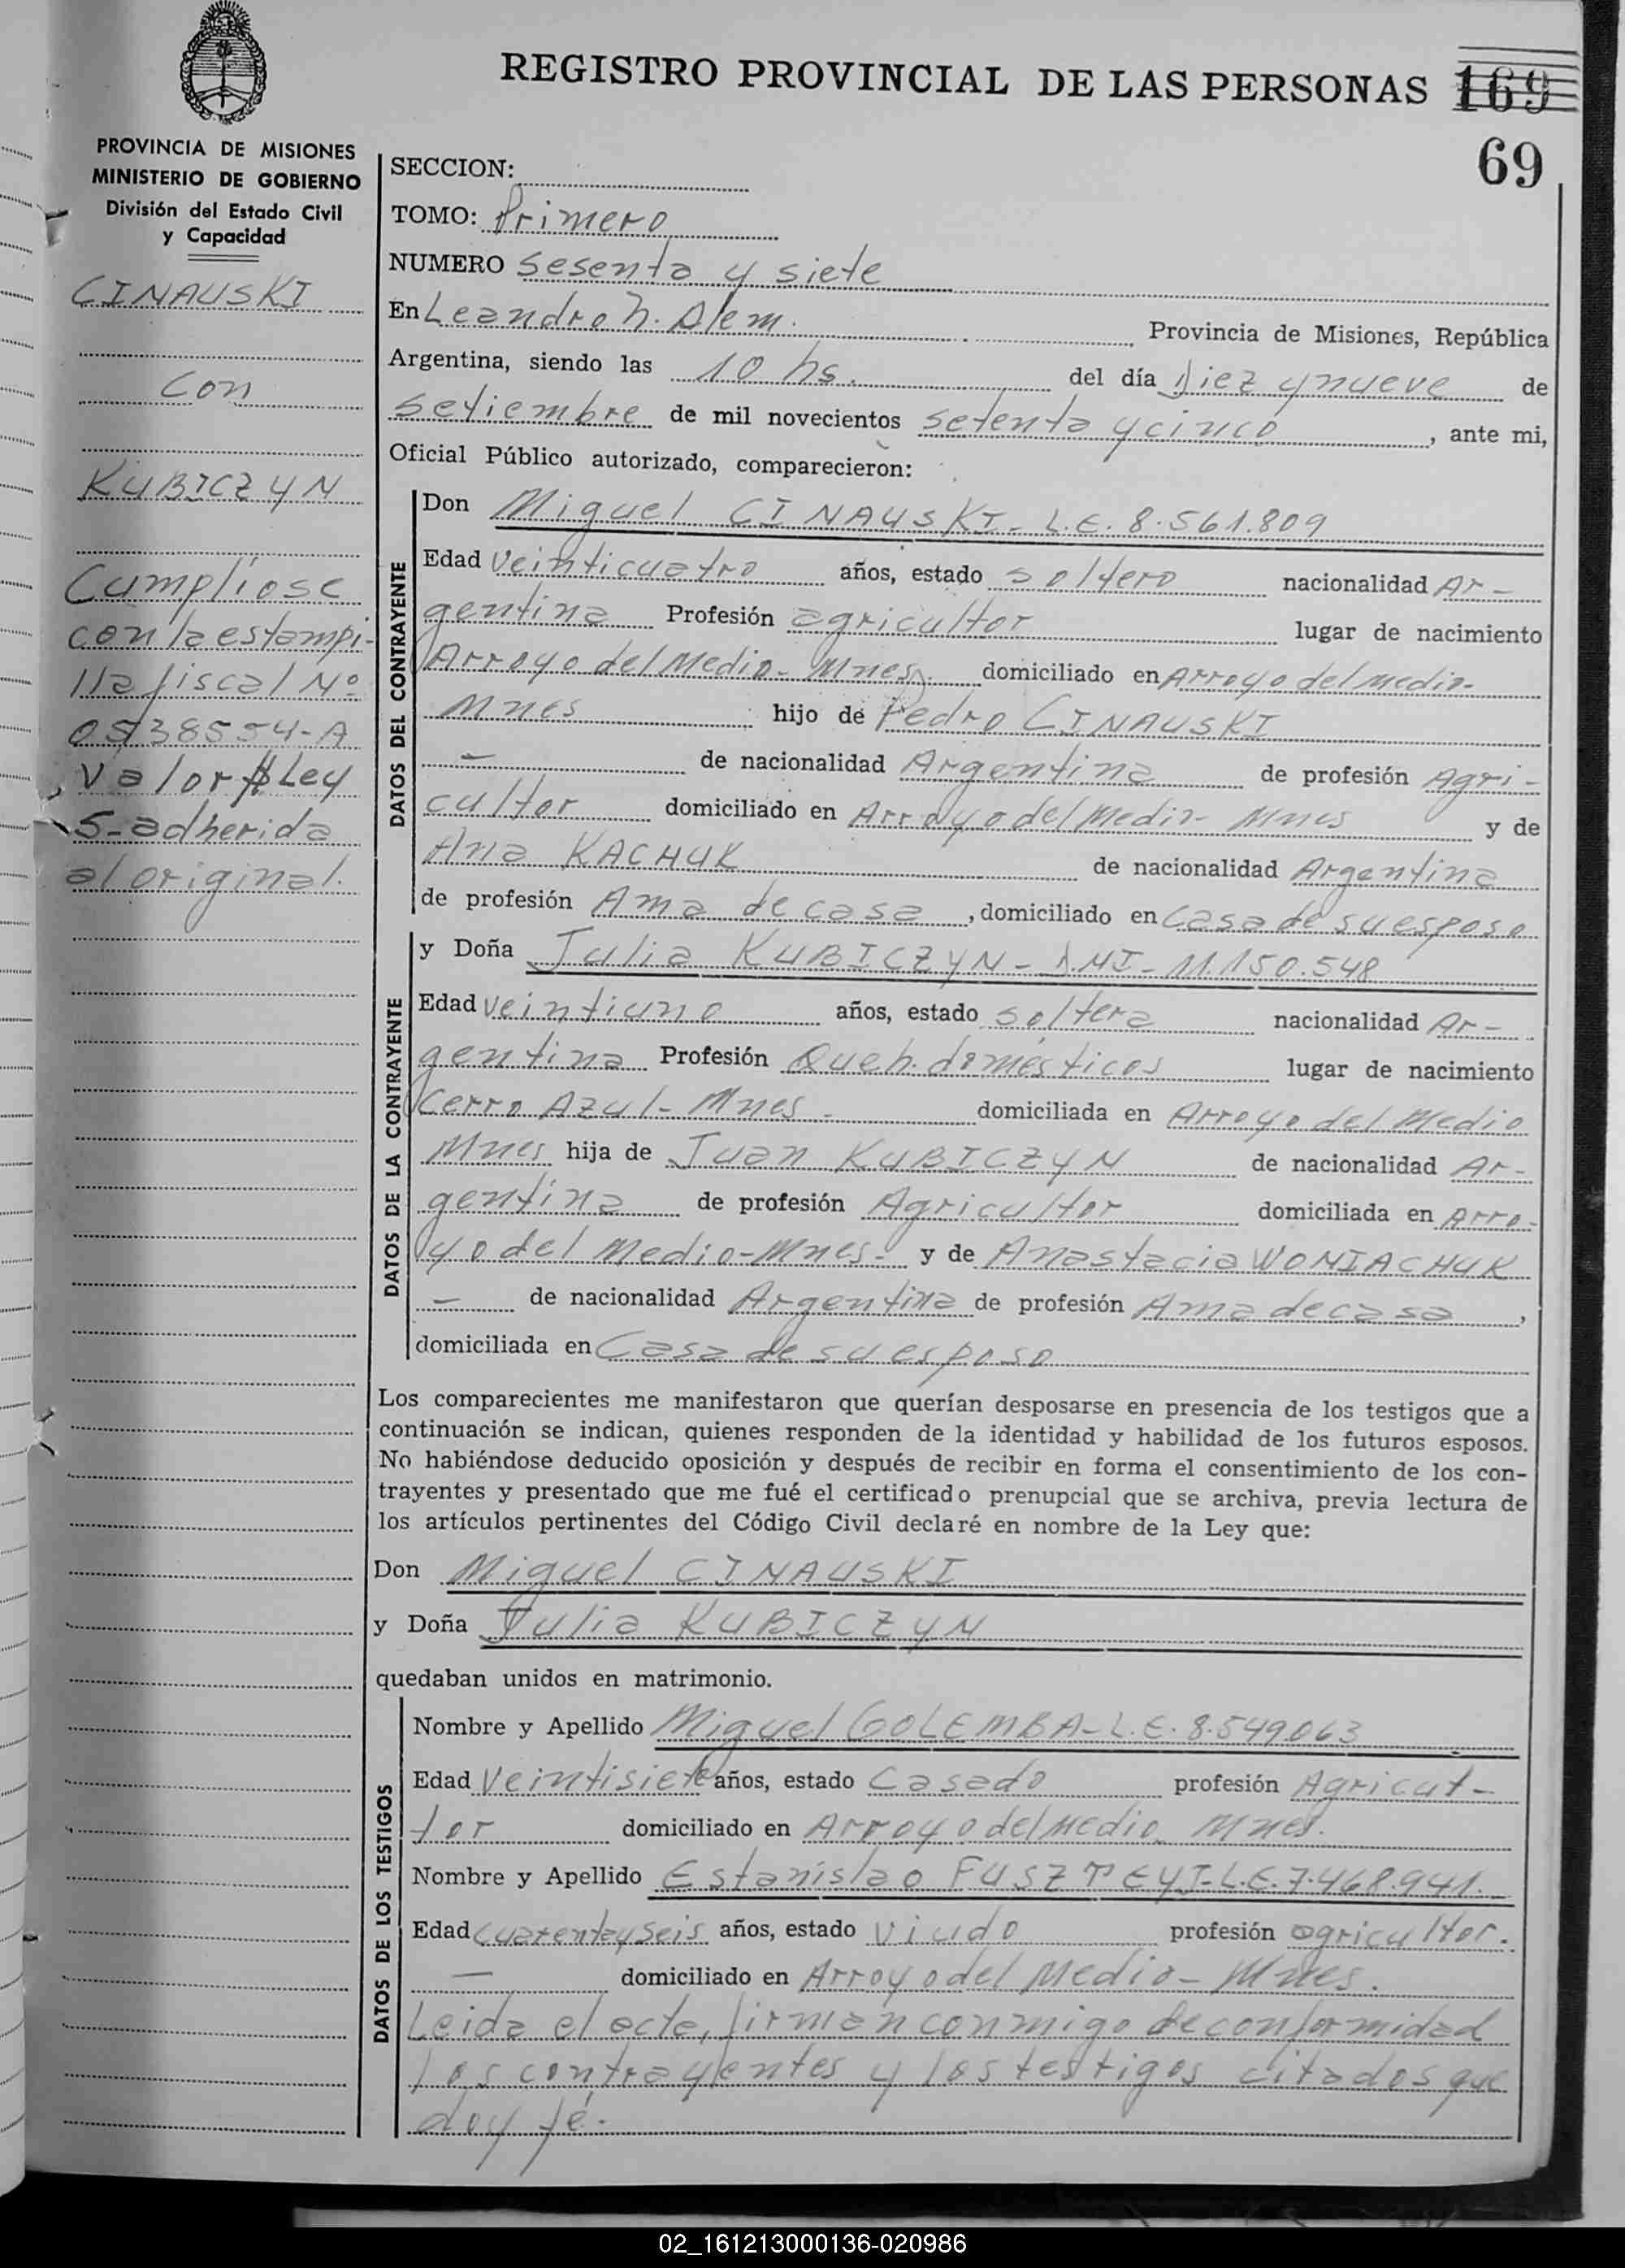 REGISTRO PROVINCIAL DE LAS PERSONAS 169
69
PROVINCIA DE MISIONES
MINISTERIO DE GOBIERNO
División del Estado Civil
y Capacidad
CINAUSKI
con
KUBICZYN
Cumpliose
con la estampi-
lla fiscal Nº
0538554-A
Valor $ Ley
5- adherida
al original.
SECCION:
TOMO: Primero
NUMERO Sesenta y siete
En Leandro N. Alem. Provincia de Misiones, República
Argentina, siendo las 10 hs. del día Diez y nueve de
setiembre de mil novecientos setenta y cinco, ante mi,
Oficial Público autorizado, comparecieron:
DATOS DEL CONTRAYENTE
Don Miguel CINAUSKI- L.E. 8.561.809
Edad veinticuatro años, estado soltero nacionalidad Ar-
gentina Profesión agricultor lugar de nacimiento
Arroyo del Medio- Mnes. domiciliado en Arroyo del medio-
Mnes hijo de Pedro CINAUSKI
- de nacionalidad Argentina de profesión Agri-
cultor domiciliado en Arroyo del Medio- Mnes y de
Ana KACHUK de nacionalidad Argentina
de profesión Ama de casa, domiciliado en Casa de su esposo
DATOS DE LA CONTRAYENTE
y Doña Julia KUBICZYN- D.N.I- 11.150.548
Edad veintiuno años, estado soltera nacionalidad Ar-
gentina Profesión Queh. domésticos lugar de nacimiento
Cerro Azul- Mnes- domiciliada en Arroyo del Medio
Mnes hija de Juan KUBICZYN de nacionalidad Ar-
gentina de profesión Agricultor domiciliada en Arro-
yo del Medio-Mnes- y de Anastacia WONIACHUK
- de nacionalidad Argentina de profesión Ama de casa,
domiciliada en Casa de su esposo
Los comparecientes me manifestaron que querían desposarse en presencia de los testigos que a
continuación se indican, quienes responden de la identidad y habilidad de los futuros esposos.
No habiéndose deducido oposición y después de recibir en forma el consentimiento de los con-
trayentes y presentado que me fué el certificado prenupcial que se archiva, previa lectura de
los artículos pertinentes del Código Civil declaré en nombre de la Ley que:
Don Miguel CINAUSKI
y Doña Julia KUBICZYN
quedaban unidos en matrimonio.
DATOS DE LOS TESTIGOS
Nombre y Apellido Miguel GOLEMBA- L.E. 8.549.063
Edad Veintisiete años, estado Casado profesión Agricul-
tor domiciliado en Arroyo del Medio Mnes.
Nombre y Apellido Estanislao FUSZTEYI- L.E. 7.468.941.-
Edad cuarenta y seis años, estado viudo profesión agricultor.
- domiciliado en Arroyo del Medio- Mnes.
Leida el acta, firman conmigo de conformidad
los contrayentes y los testigos citados que
doy fé.
02_161213000136-020986